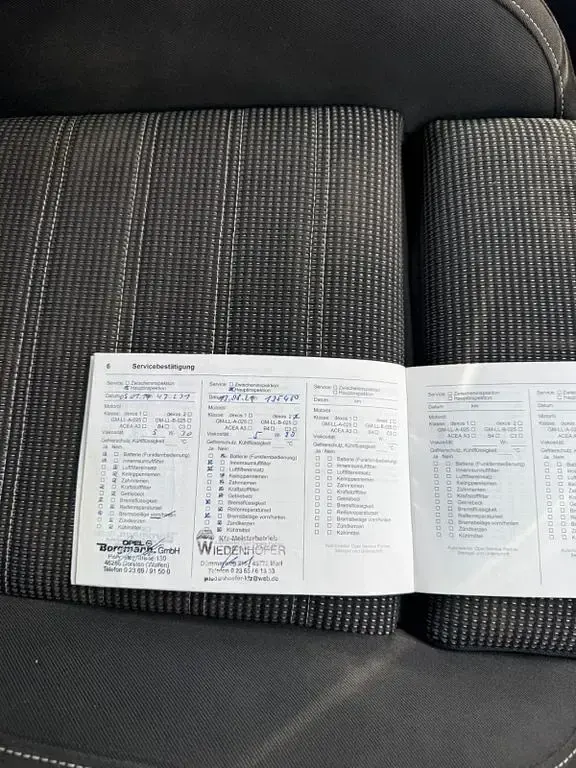 6 Servicebestätigung
Service: Zwischeninspektion
Hauptinspektion
Datum
Motoröl
Klasse: dexos 1 dexos 2
GM-LL-A-025 GM-LL-B-025
ACEA A3 B4 C3
Viskosität: 5 W 30
Gefrierschutz, Kühlflüssigkeit: °C
Ja Nein
Batterie (Funkfernbedienung)
Innenraumluftfilter
Luftfiltereinsatz
Keilrippenriemen
Zahnriemen
Kraftstofffilter
Getriebeöl
Bremsflüssigkeit
Reifenreparaturset
Bremsbeläge vorn/hinten
Zündkerzen
Kühlmittel
OPEL
Borgmann GmbH
46286 Dorsten (Wulfen)
Telefon 0 23 69 / 91 50 0
Service: Zwischeninspektion
Hauptinspektion
Datum
Motoröl
Klasse: dexos 1 dexos 2
GM-LL-A-025 GM-LL-B-025
ACEA A3 B4 C3
Viskosität: 5 W 30
Gefrierschutz, Kühlflüssigkeit: °C
Ja Nein
Batterie (Funkfernbedienung)
Innenraumluftfilter
Luftfiltereinsatz
Keilrippenriemen
Zahnriemen
Kraftstofffilter
Getriebeöl
Bremsflüssigkeit
Reifenreparaturset
Bremsbeläge vorn/hinten
Zündkerzen
Kühlmittel
Kfz-Meisterbetrieb
WIEDENHÖFER
45772 Marl
Service: Zwischeninspektion
Hauptinspektion
Datum km
Motoröl
Klasse: dexos 1 dexos 2
GM-LL-A-025 GM-LL-B-025
ACEA A3 B4 C3
Viskosität: W
Gefrierschutz, Kühlflüssigkeit: °C
Ja Nein
Batterie (Funkfernbedienung)
Innenraumluftfilter
Luftfiltereinsatz
Keilrippenriemen
Zahnriemen
Kraftstofffilter
Getriebeöl
Bremsflüssigkeit
Reifenreparaturset
Bremsbeläge vorn/hinten
Zündkerzen
Kühlmittel
Autorisierter Opel Service Partner
Stempel und Unterschrift
Service: Zwischeninspektion
Hauptinspektion
Datum km
Motoröl
Klasse: dexos 1 dexos 2
GM-LL-A-025 GM-LL-B-025
ACEA A3 B4 C3
Viskosität: W
Gefrierschutz, Kühlflüssigkeit: °C
Ja Nein
Batterie (Funkfernbedienung)
Innenraumluftfilter
Luftfiltereinsatz
Keilrippenriemen
Zahnriemen
Kraftstofffilter
Getriebeöl
Bremsflüssigkeit
Reifenreparaturset
Bremsbeläge vorn/hinten
Zündkerzen
Kühlmittel
Autorisierter Opel Service Partner
Stempel und Unterschrift
Service:
Datum
Motoröl
Klasse: